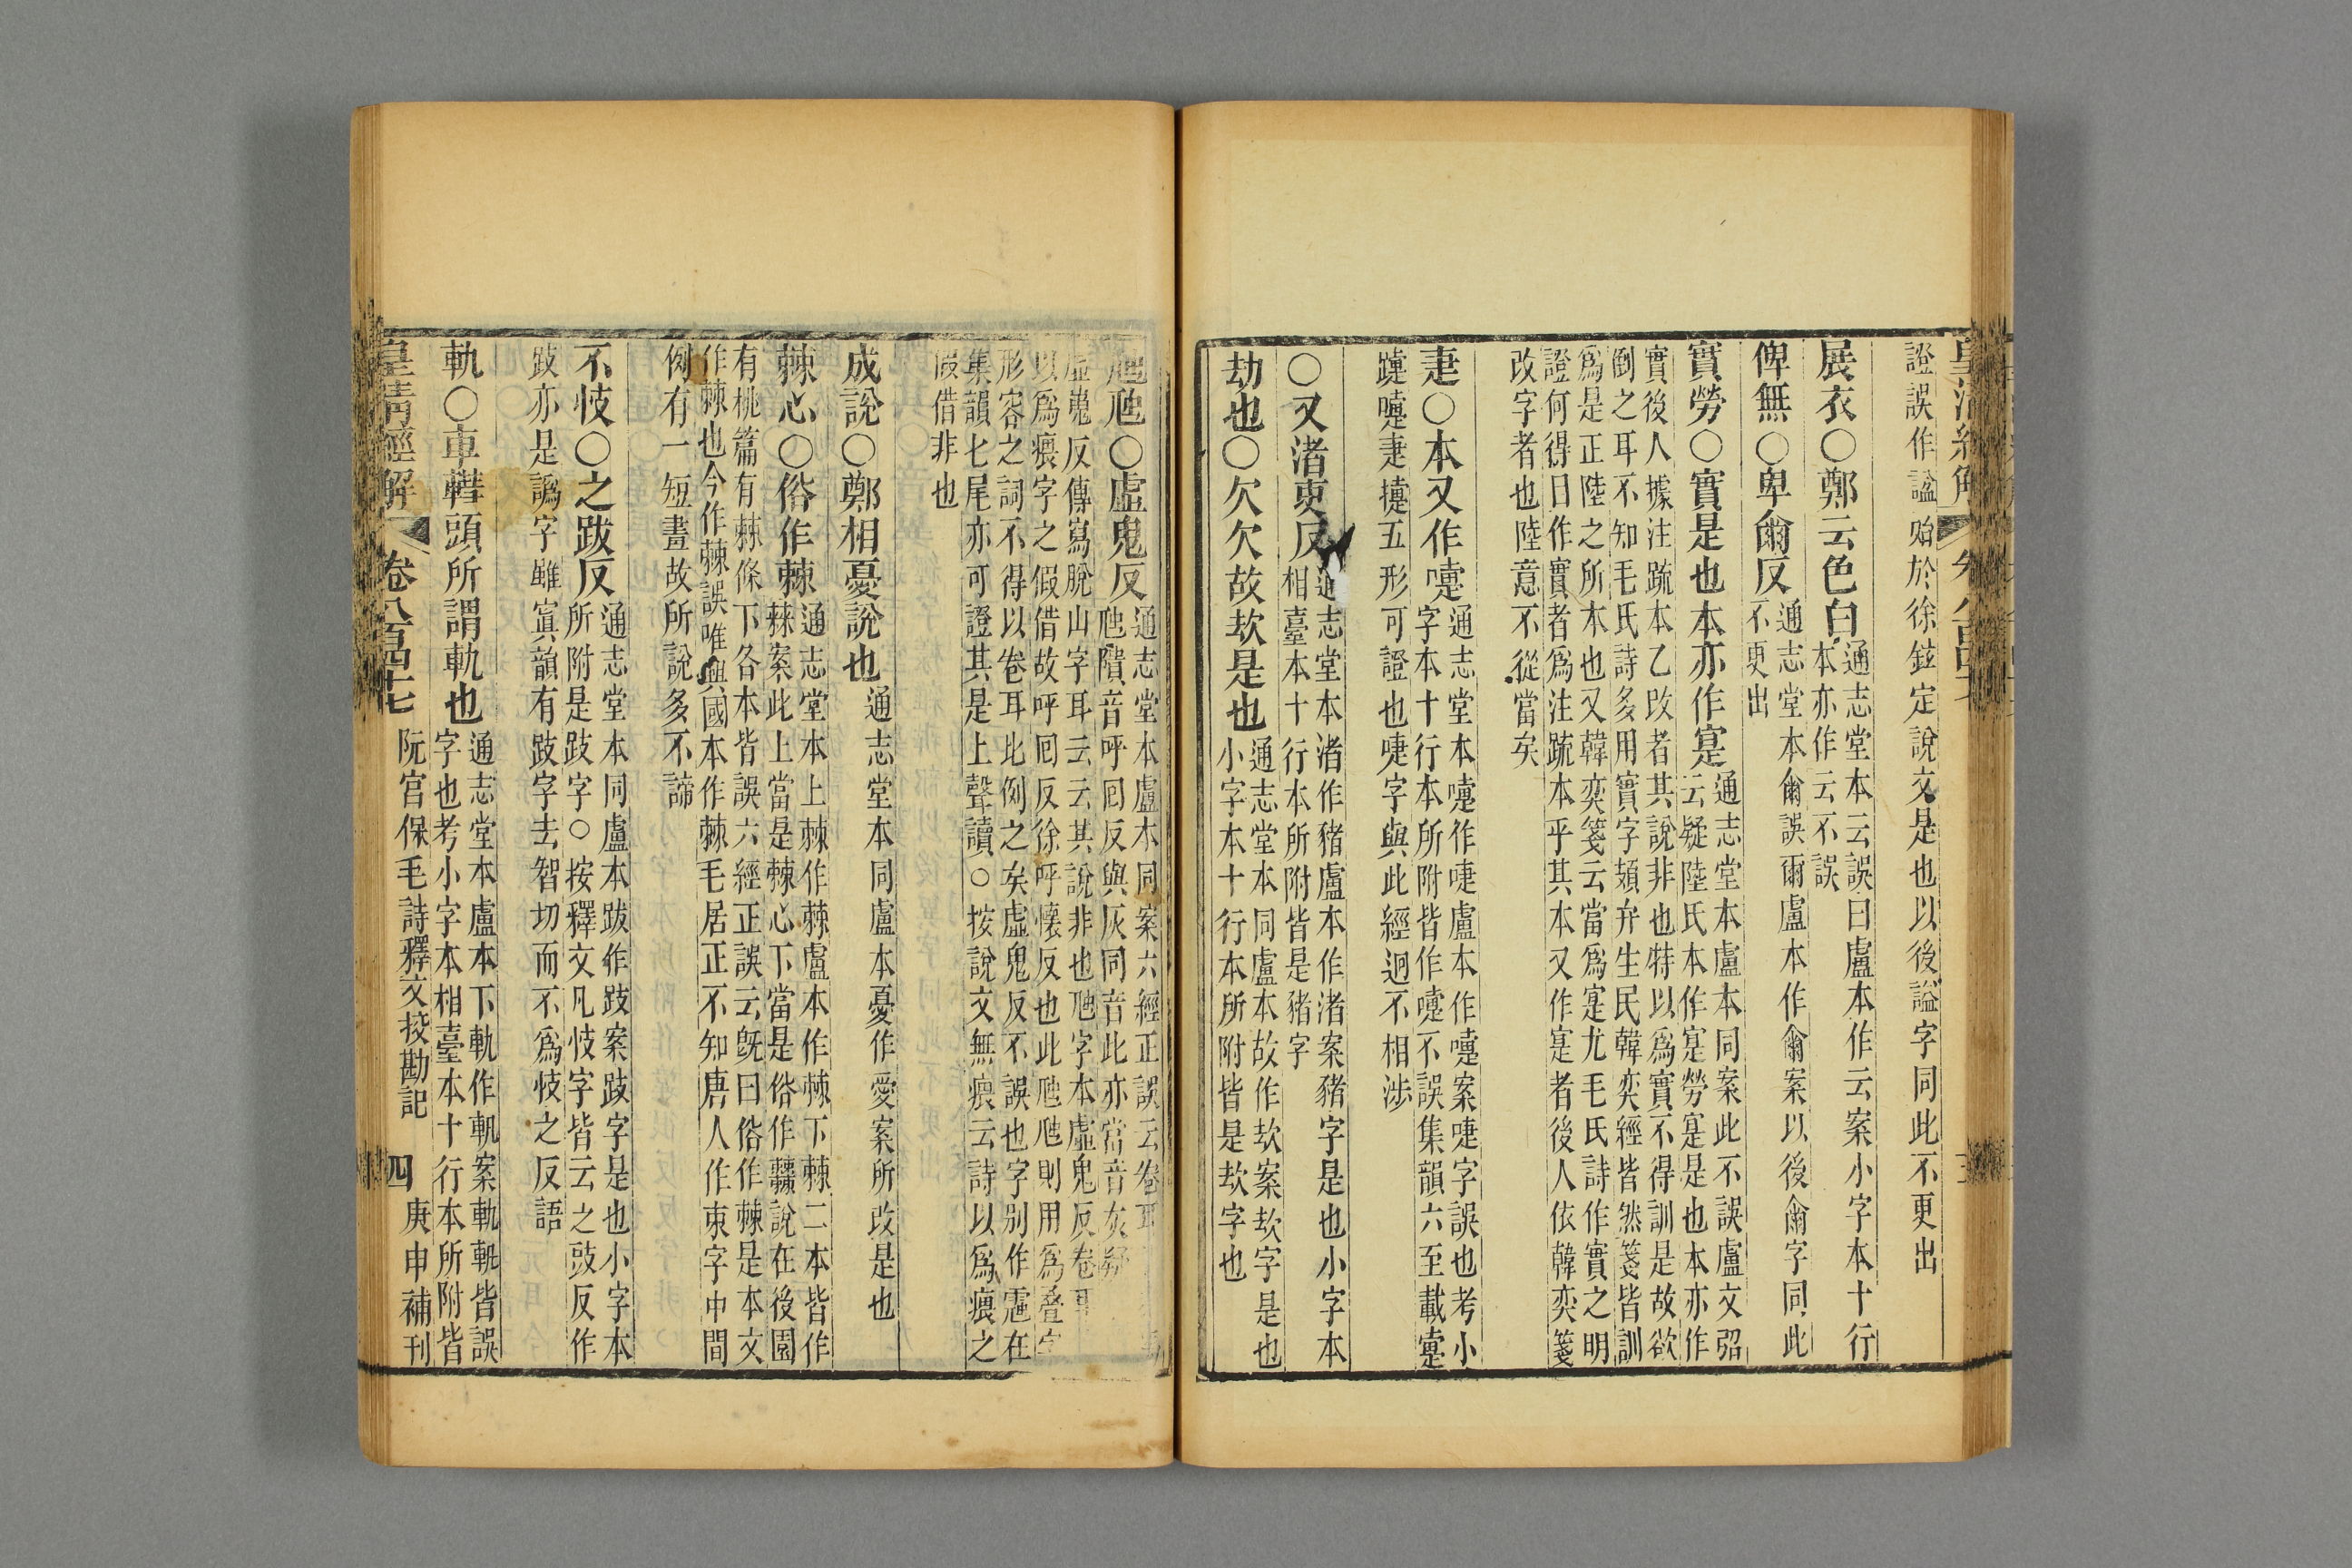 證誤作諡始於徐鉉定說文是也以後諡字同此不更出
展衣○鄭云色白通志堂本云誤曰盧本作云案小字本十行
本亦作云不誤
俾無○卑爾反通志堂本爾誤爾盧本作爾案以後爾字同此
不更出
實勞○實是也本亦作寔通志堂本盧本同案此不誤盧文弨
云疑陸氏本作寔勞寔是也本亦作
實後人據注疏本乙改者其說非也特以爲實不得訓是故欲
倒之耳不知毛氏詩多用實字頍弁生民韓奕經皆然箋皆訓
爲是正陸之所本也又韓奕箋云當爲寔尤毛氏詩作實之明
證何得曰作實者爲注疏本乎其本又作寔者後人依韓奕箋
改字者也陸意不從當矣
疌○本又作嚏通志堂本嚏作啑盧本作嚏案啑字誤也考小
字本十行本所附皆作嚏不誤集韻六至載疐
踕嚏疌㨗五形可證也啑字與此經迥不相涉
○又渚吏反通志堂本渚作豬盧本作渚案豬字是也小字本
相臺本十行本所附皆是豬字
劫也○欠欠故欬是也通志堂本同盧本故作欬案欬字是也
小字本十行本所附皆是欬字也
虺虺○虛鬼反通志堂本盧本同案六經正誤云卷耳
虺隤音呼囘反與灰同音此亦當音灰疑
虛嵬反傳寫脫山字耳云云其說非也虺字本虛鬼反卷耳
以爲㾯字之假借故呼囘反徐呼懷反也此虺虺則用爲疊字
形容之詞不得以卷耳比例之矣虛鬼反不誤也字别作䨓在
集韻七尾亦可證其是上聲讀○按說文無㾯云詩以爲㾯之
假借非也
成說○鄭相憂說也通志堂本同盧本憂作愛案所改是也
棘心○俗作棘通志堂本上棘作棘盧本作棘下棘二本皆作
棘案此上當是棘心下當是俗作䕲說在後園
有桃篇有棘條下各本皆誤六經正誤云旣曰俗作棘是本文
作棘也今作棘誤唯興國本作棘毛居正不知唐人作朿字中間
例有一短畫故所說多不諦
不忮○之跋反通志堂本同盧本跋作跂案跂字是也小字本
所附是跂字○按釋文凡忮字皆云之豉反作
跂亦是譌字雖寘韻有跂字去智切而不爲忮之反語
軌○車轊頭所謂軌也通志堂本盧本下軌作軓案軌軓皆誤
字也考小字本相臺本十行本所附皆
皇清經解 卷八百四十七 阮宮保毛詩釋文挍勘記 四 庚申補刊